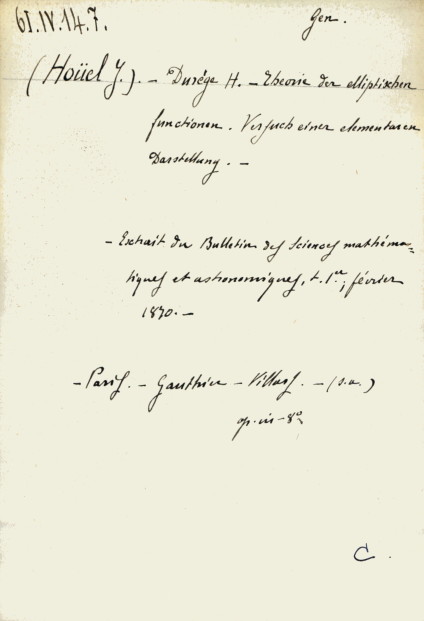 61.IV.14.7.
Gen.
(Hoüel J.). – Durége H. – Theorie der elliptischen
functionen. Versuch einer elementaren
Darstellung. –
– Extrait du Bulletin des Sciences mathéma=
tiques et astronomiques, t. 1er; février
1870. –
– Paris. – Gauthier – Villars. – (s.a.)
op. in – 8°
C.